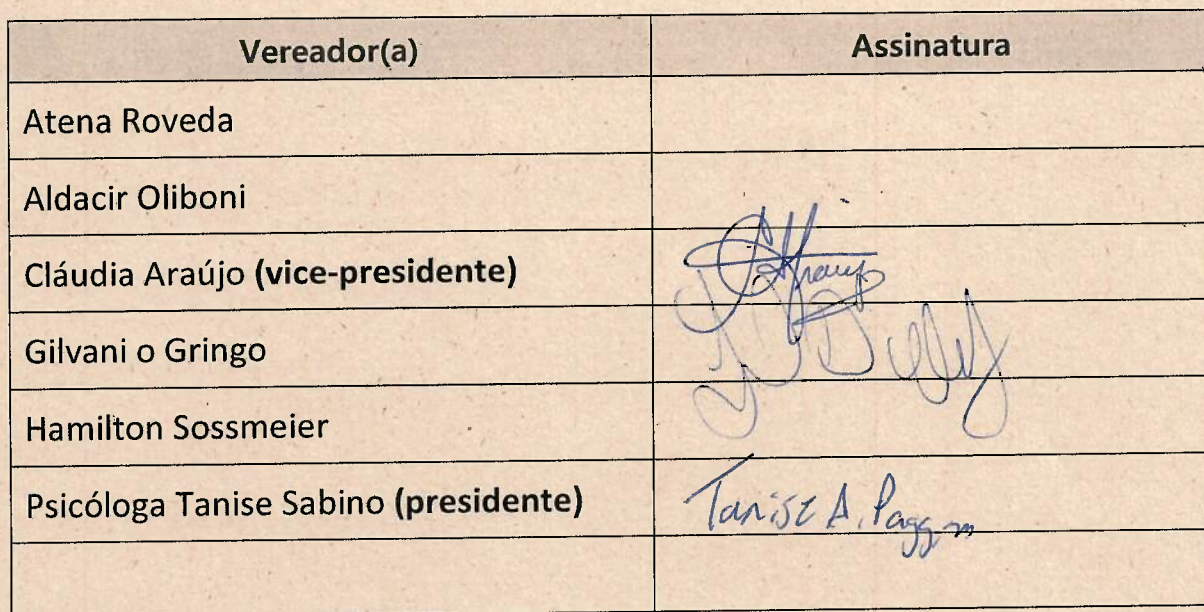 Vereador(a) Assinatura
Atena Roveda
Aldacir Oliboni
Cláudia Araújo (vice-presidente)
Gilvani o Gringo
Hamilton Sossmeier
Psicóloga Tanise Sabino (presidente) Tanise A.